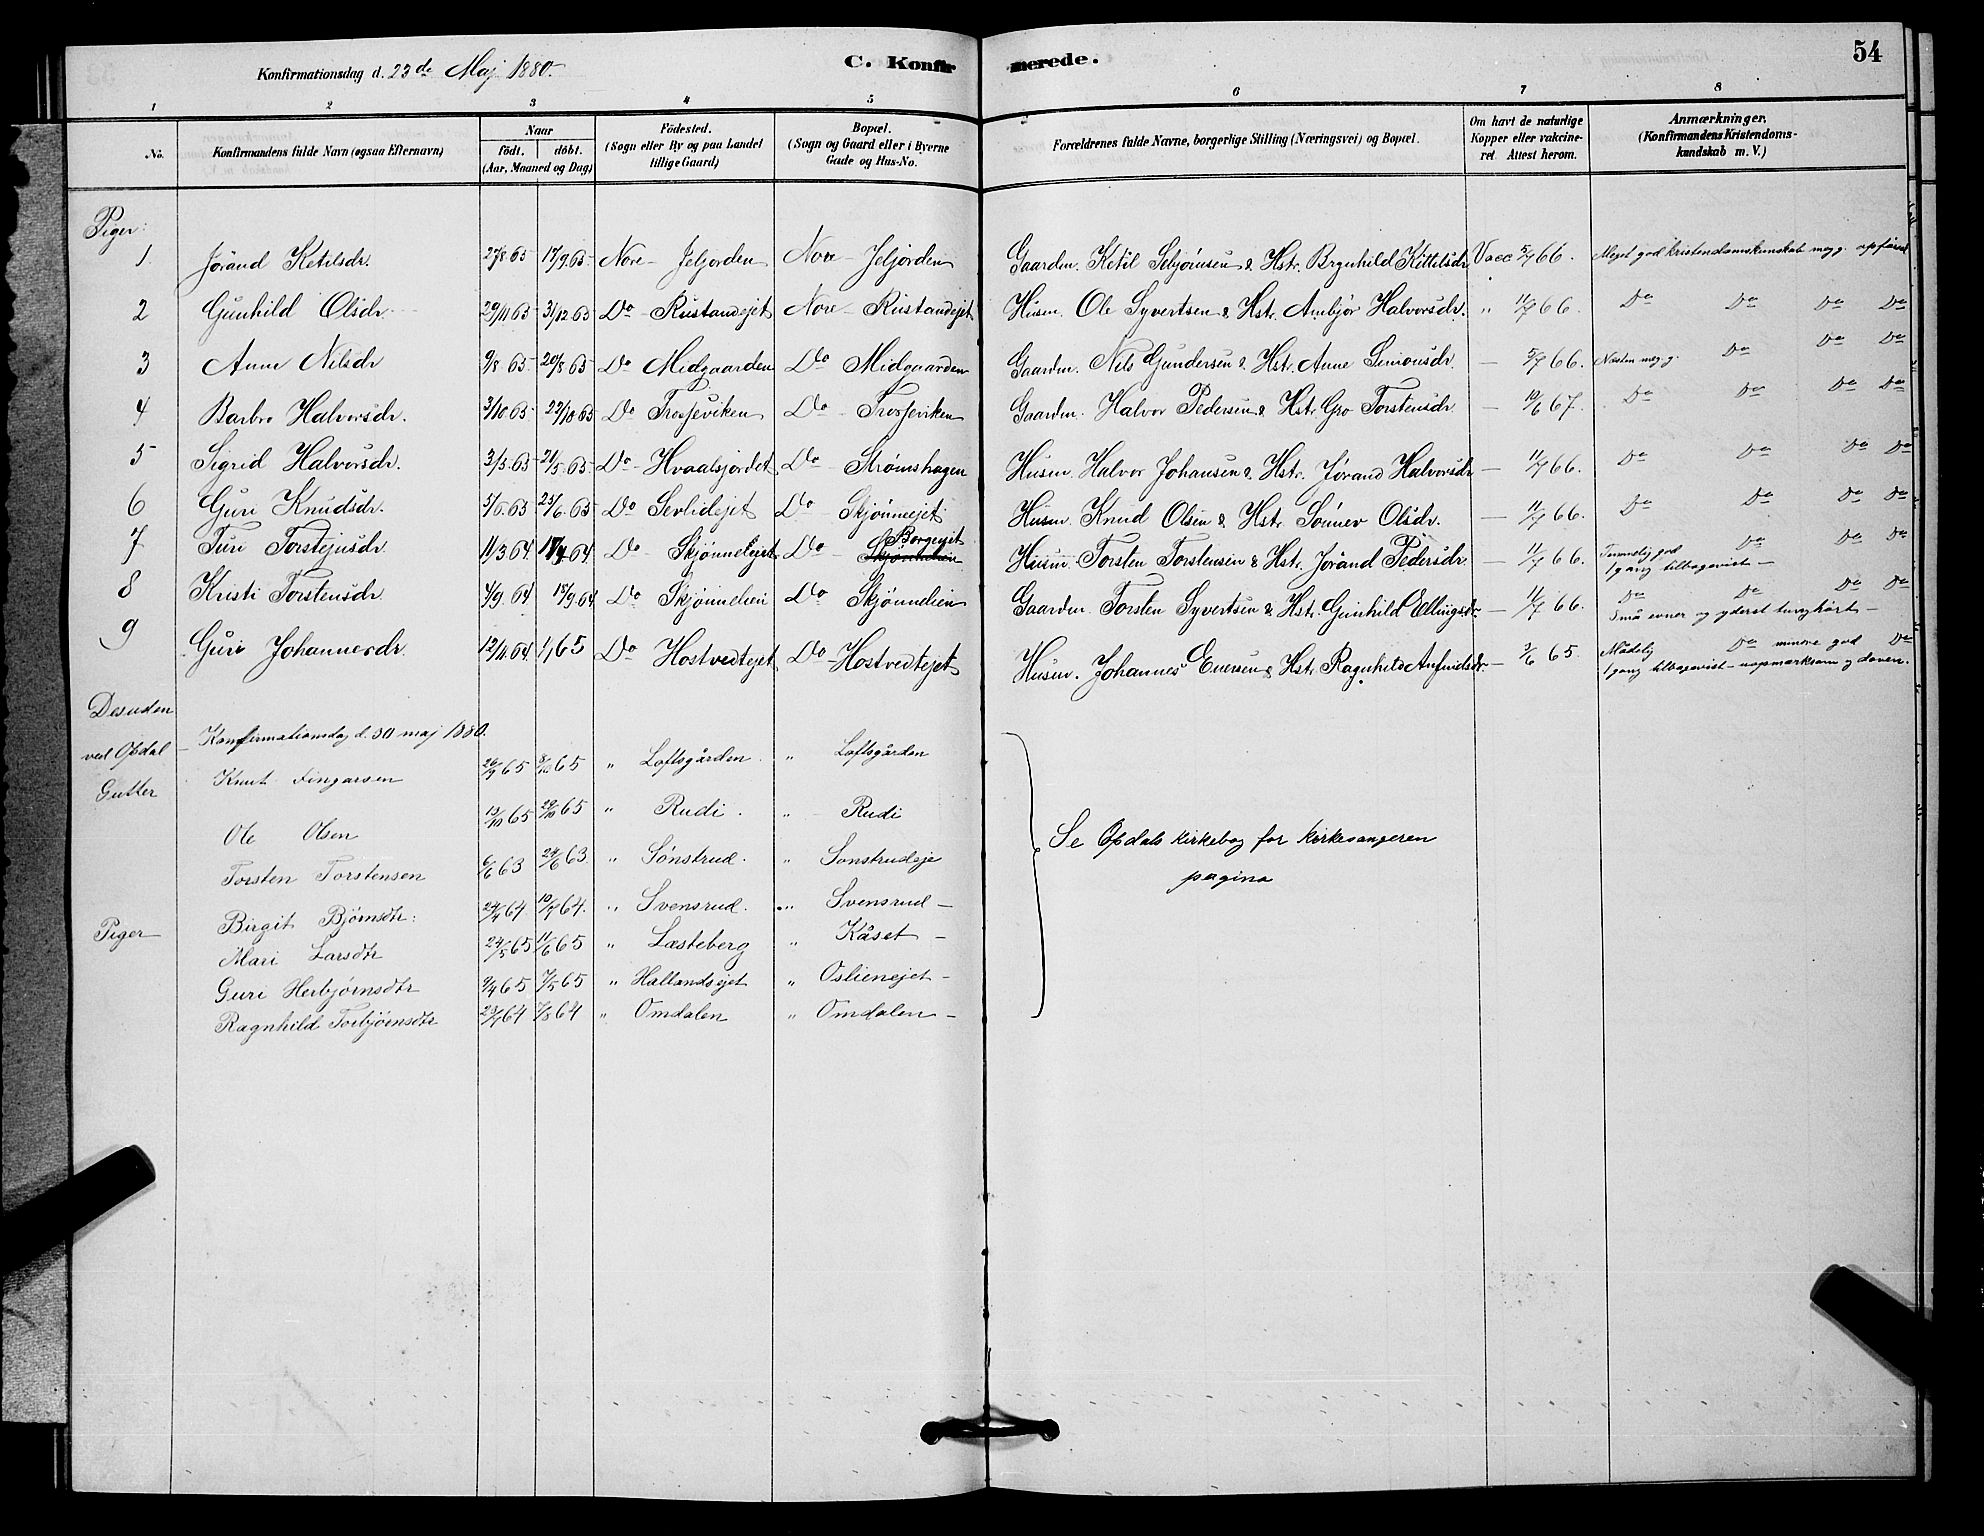 Konfirmationsdag d. 23de Maj 1880.
C. Konfirmerede.
54
1 2 3 4 5 6 7 8
No.
Konfirmandens fulde Navn (ogsaa Efternavn)
Naar
födt. döbt.
(Aar, Maaned og Dag)
Födested.
(Sogn eller By og paa Landet
tillige Gaard)
Bopæl.
(Sogn og Gaard eller i Byerne
Gade og Hus-No.
Forældrenes fulde Navne, borgerlige Stilling (Næringsvei) og Bopæl.
Om havt de naturlige
Kopper eller vakcine-
ret. Attest herom.
Anmærkninger.
(Konfirmandens Kristendoms-
kundskab m. V.)
Piger:
1 Jørand Ketilsdr. 27/8 65 17/9 65 Nore - Jeljorden Nore - Jeljorden Gaarden. Ketil Sebjørnsen & Hstr. Brynhild Kittilsdr Vacc 5/7 66. Meget god kristendomskunskab meg g. opførsel
2 Gunhild Olsdr 29/11 65 31/12 65 Do - Rustandejet Nore - Rustandejet Husm. Ole Syvertsen & Hstr. Ambjør Halvorsdr. " 11/7 66. Do Do Do Do
3 Anne Nilsdr 9/8 65 20/8 65 Do Midgaarden Do Midgaarden Gaardm. Nils Gundersen & Hstr. Anne Simonsdr. — 5/7 66. Næsten meg. g. Do Do Do
4 Barbro Halvorsdr. 3/10 65 22/10 65 Do Trosjeviken Do - Trosjeviken Gaardm. Halvor Pedersen & Hstr. Gro Torstensdr. — 10/6 67. Do Do Do Do
5 Sigrid Halvorsdr. 3/5 65 21/5 65 Do - Hvaalsjordet Do - Strømshagen Husm. Halvor Johansen & Hstr. Jørand Halvorsdr — 11/7 66. Do Do Do Do
6 Guri Knudsdr. 5/6 65 25/6 65 Do Sevlidejet Do Skjønneejet Husm. Knud Olsen & Hstr. Sønnev Olsdr. — 11/7 66. Do Do Do Do
Borgeejet
7 Turi Torstejnsdr 11/3 64 17/4 64. Do - Skjønnelejet Do - Skjønnelien Husm. Torsten Torstensen & Hstr. Jørand Pedersdr. — 11/7 66. Temmelig god Do Do Do
1 gang tilbagevist —
8 Kristi Torstensdr. 4/9 64 18/9 64 Do Skjønnelien Do Skjønnelien Gaardm. Torsten Syvertsen & Hstr. Gunhild Ellingsdr. — 11/7 66. Do Do Do Do
Små evner og yderst tunghørt —
9 Guri Johannesdr. 12/11 64 1/1 65 Do Hostvedtejet Do - Hostvedtejet Husm. Johannes Enersen & Hstr. Ragnhild Anfindsdr — 3/6 65. Mådelig Do mindre god Do
1 gang tilbagevist — uopmærksom og doven.
Desuden
ved Opdal — Konfirmationsdag d. 30 maj 1880.
Gutter Knut Fingarsen 26/9 65 8/10 65 " Loftsgården. " Loftsgården
Ole Olsen 13/10 65 29/10 65 " Rudi. " Rudi
Torsten Torstensen 6/6 63 24/6 63. " Sønstrud. " Sonstrudeje
Se Opdals kirkebog for kirkesangeren
pagina
Piger Birgit Bjørnsdtr. 24/4 64 10/7 64. " Svensrud. " Svensrud —
Mari Larsdtr 24/5 65 11/6 65 " Læsteberg " Kåset —
Guri Herbjørnsdtr 9/4 65 7/5 65 " Hallandsejet " Oslienejet —
Ragnhild Torbjørnsdtr 23/7 64 7/8 64 " Omdalen " Omdalen —